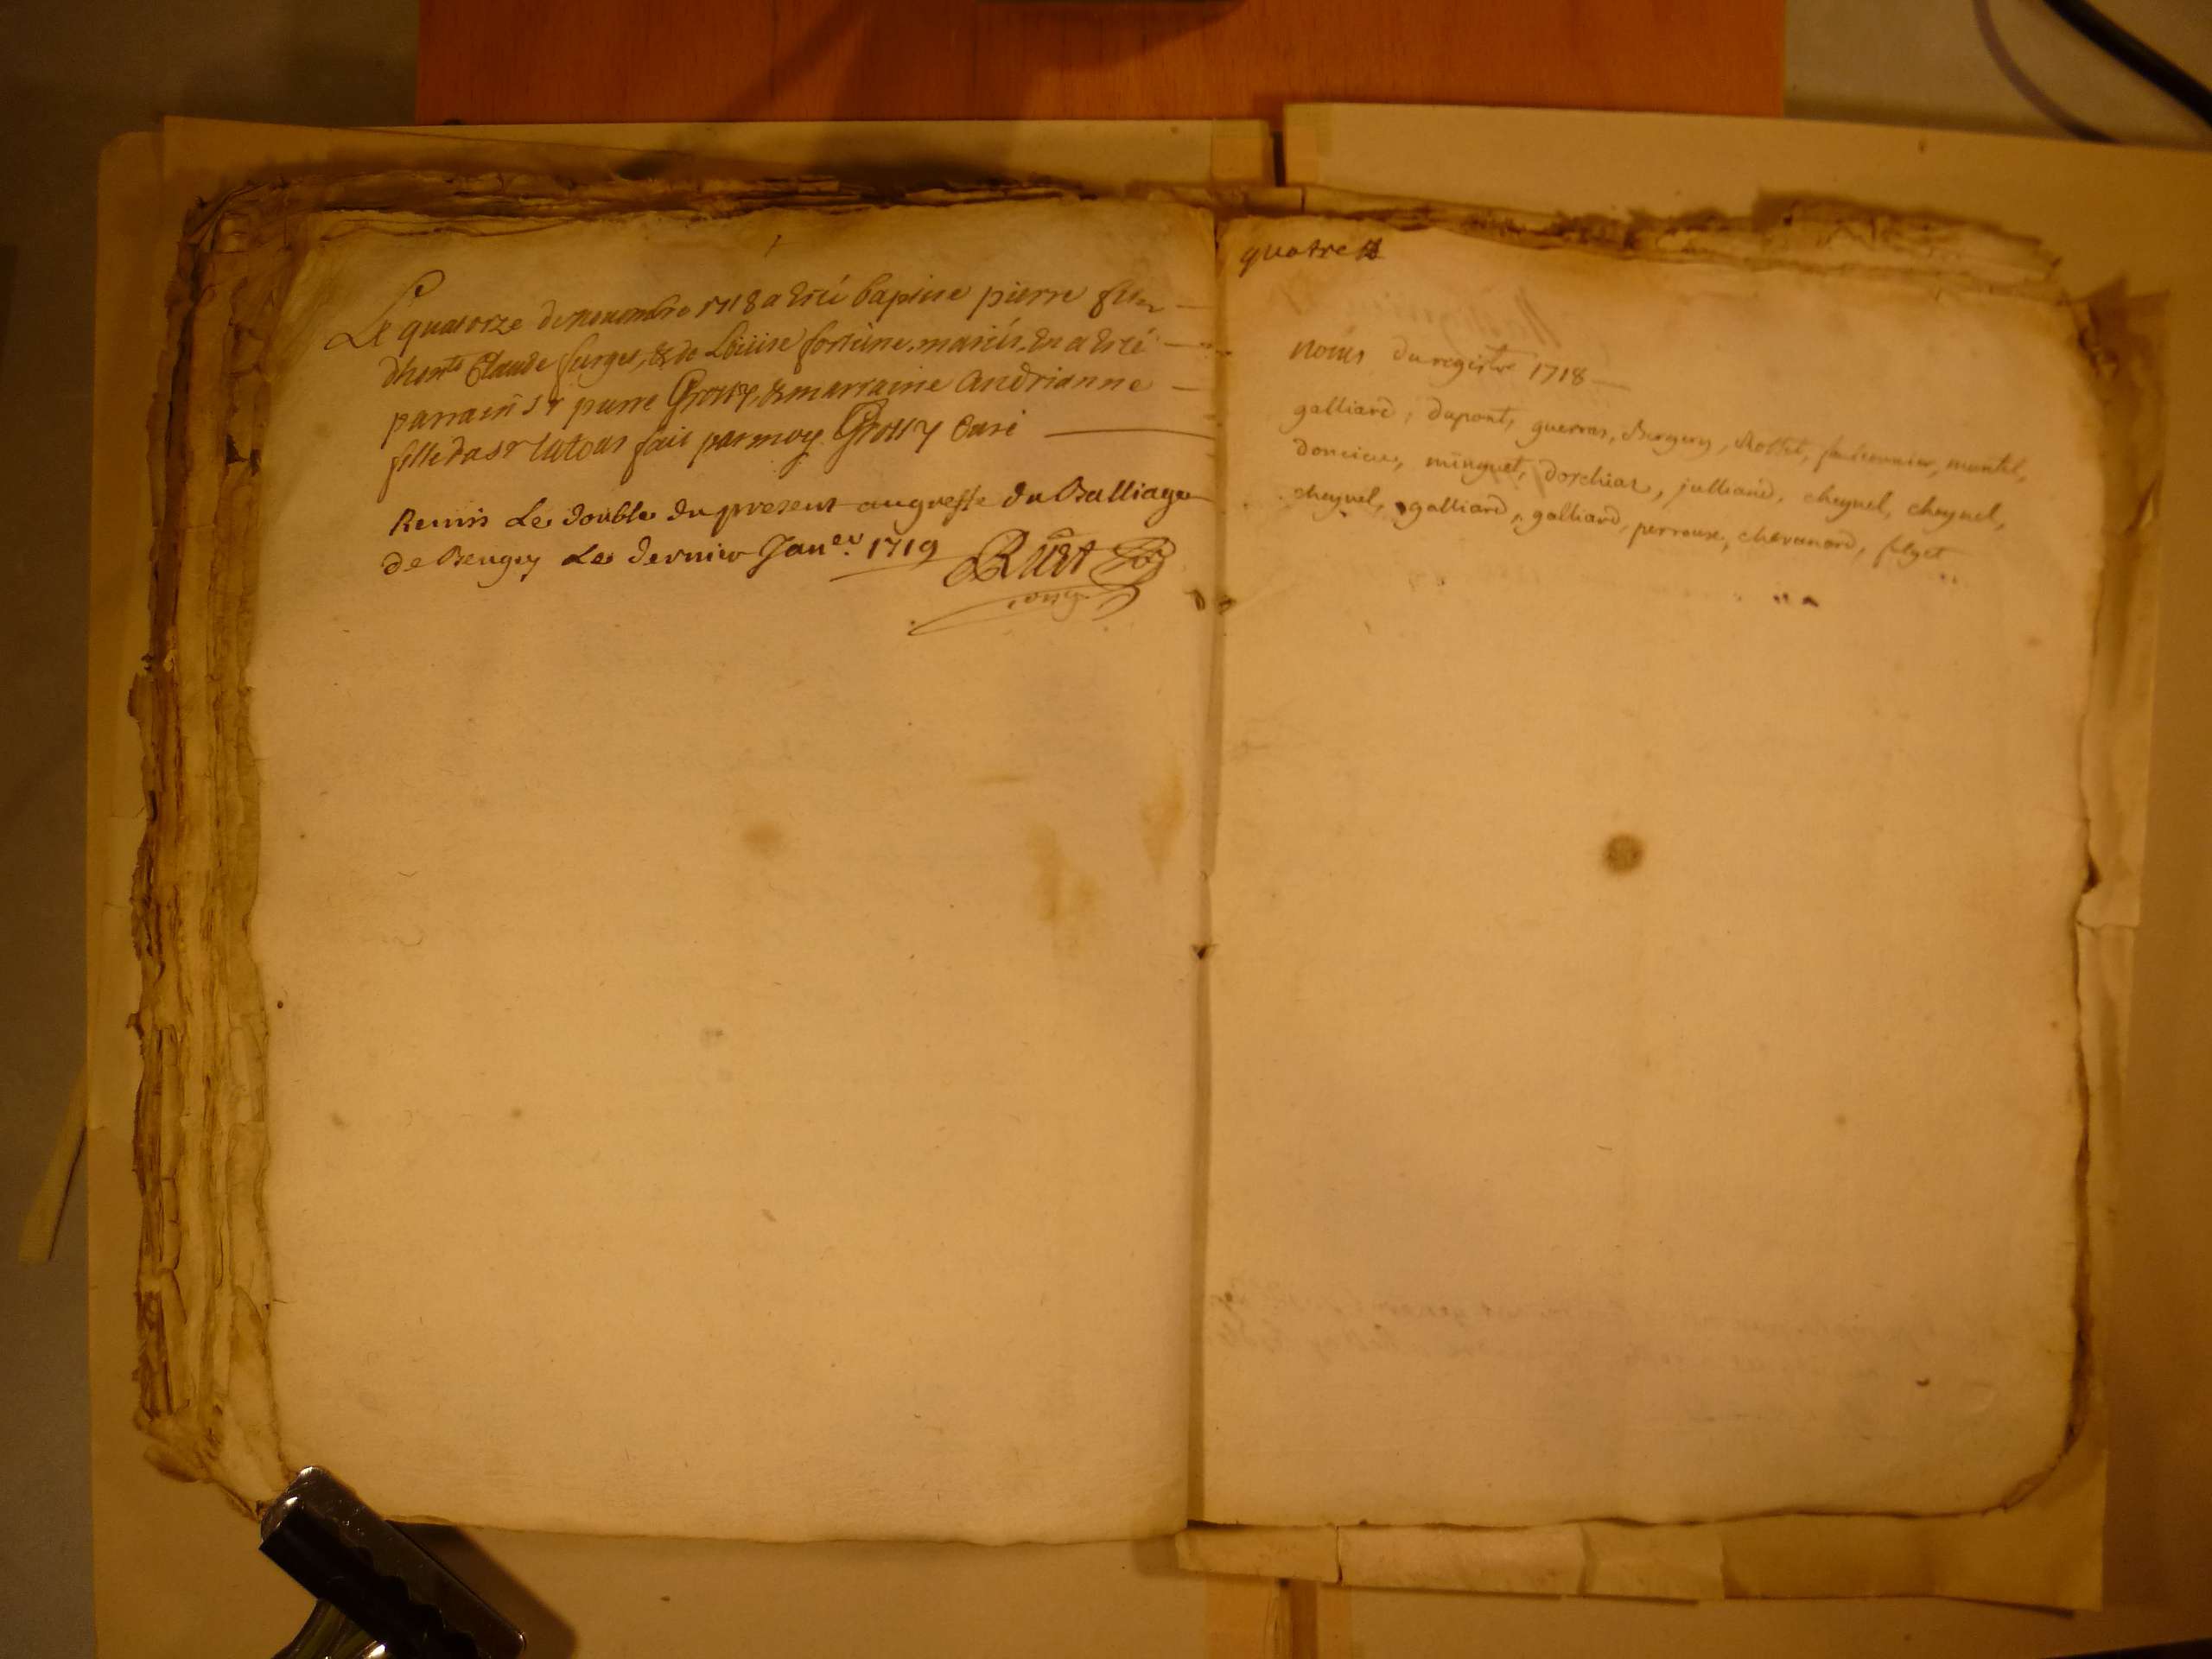 Le quatorze de novembre 1718 a esté baptisé pierre fils
dhonte Claude furges, & de Loüise fortune mariés. En a esté
parrain sr pierre Grossy, & marraine Andrianne
fille da sr fait par moy Grossy Curé
Remis Le double du present au greffe du Balliage
de Beugey Le dernier Janer. 1719 Rüet
quatre
noms du registre 1718
galliard, dupont, guerras, Bergery, Mollet, mantel,
doncieu, minguet, dorchias, julliand, cheynel, cheynel,
cheynel, galliard, galliard, perroux, chevanard, filyet